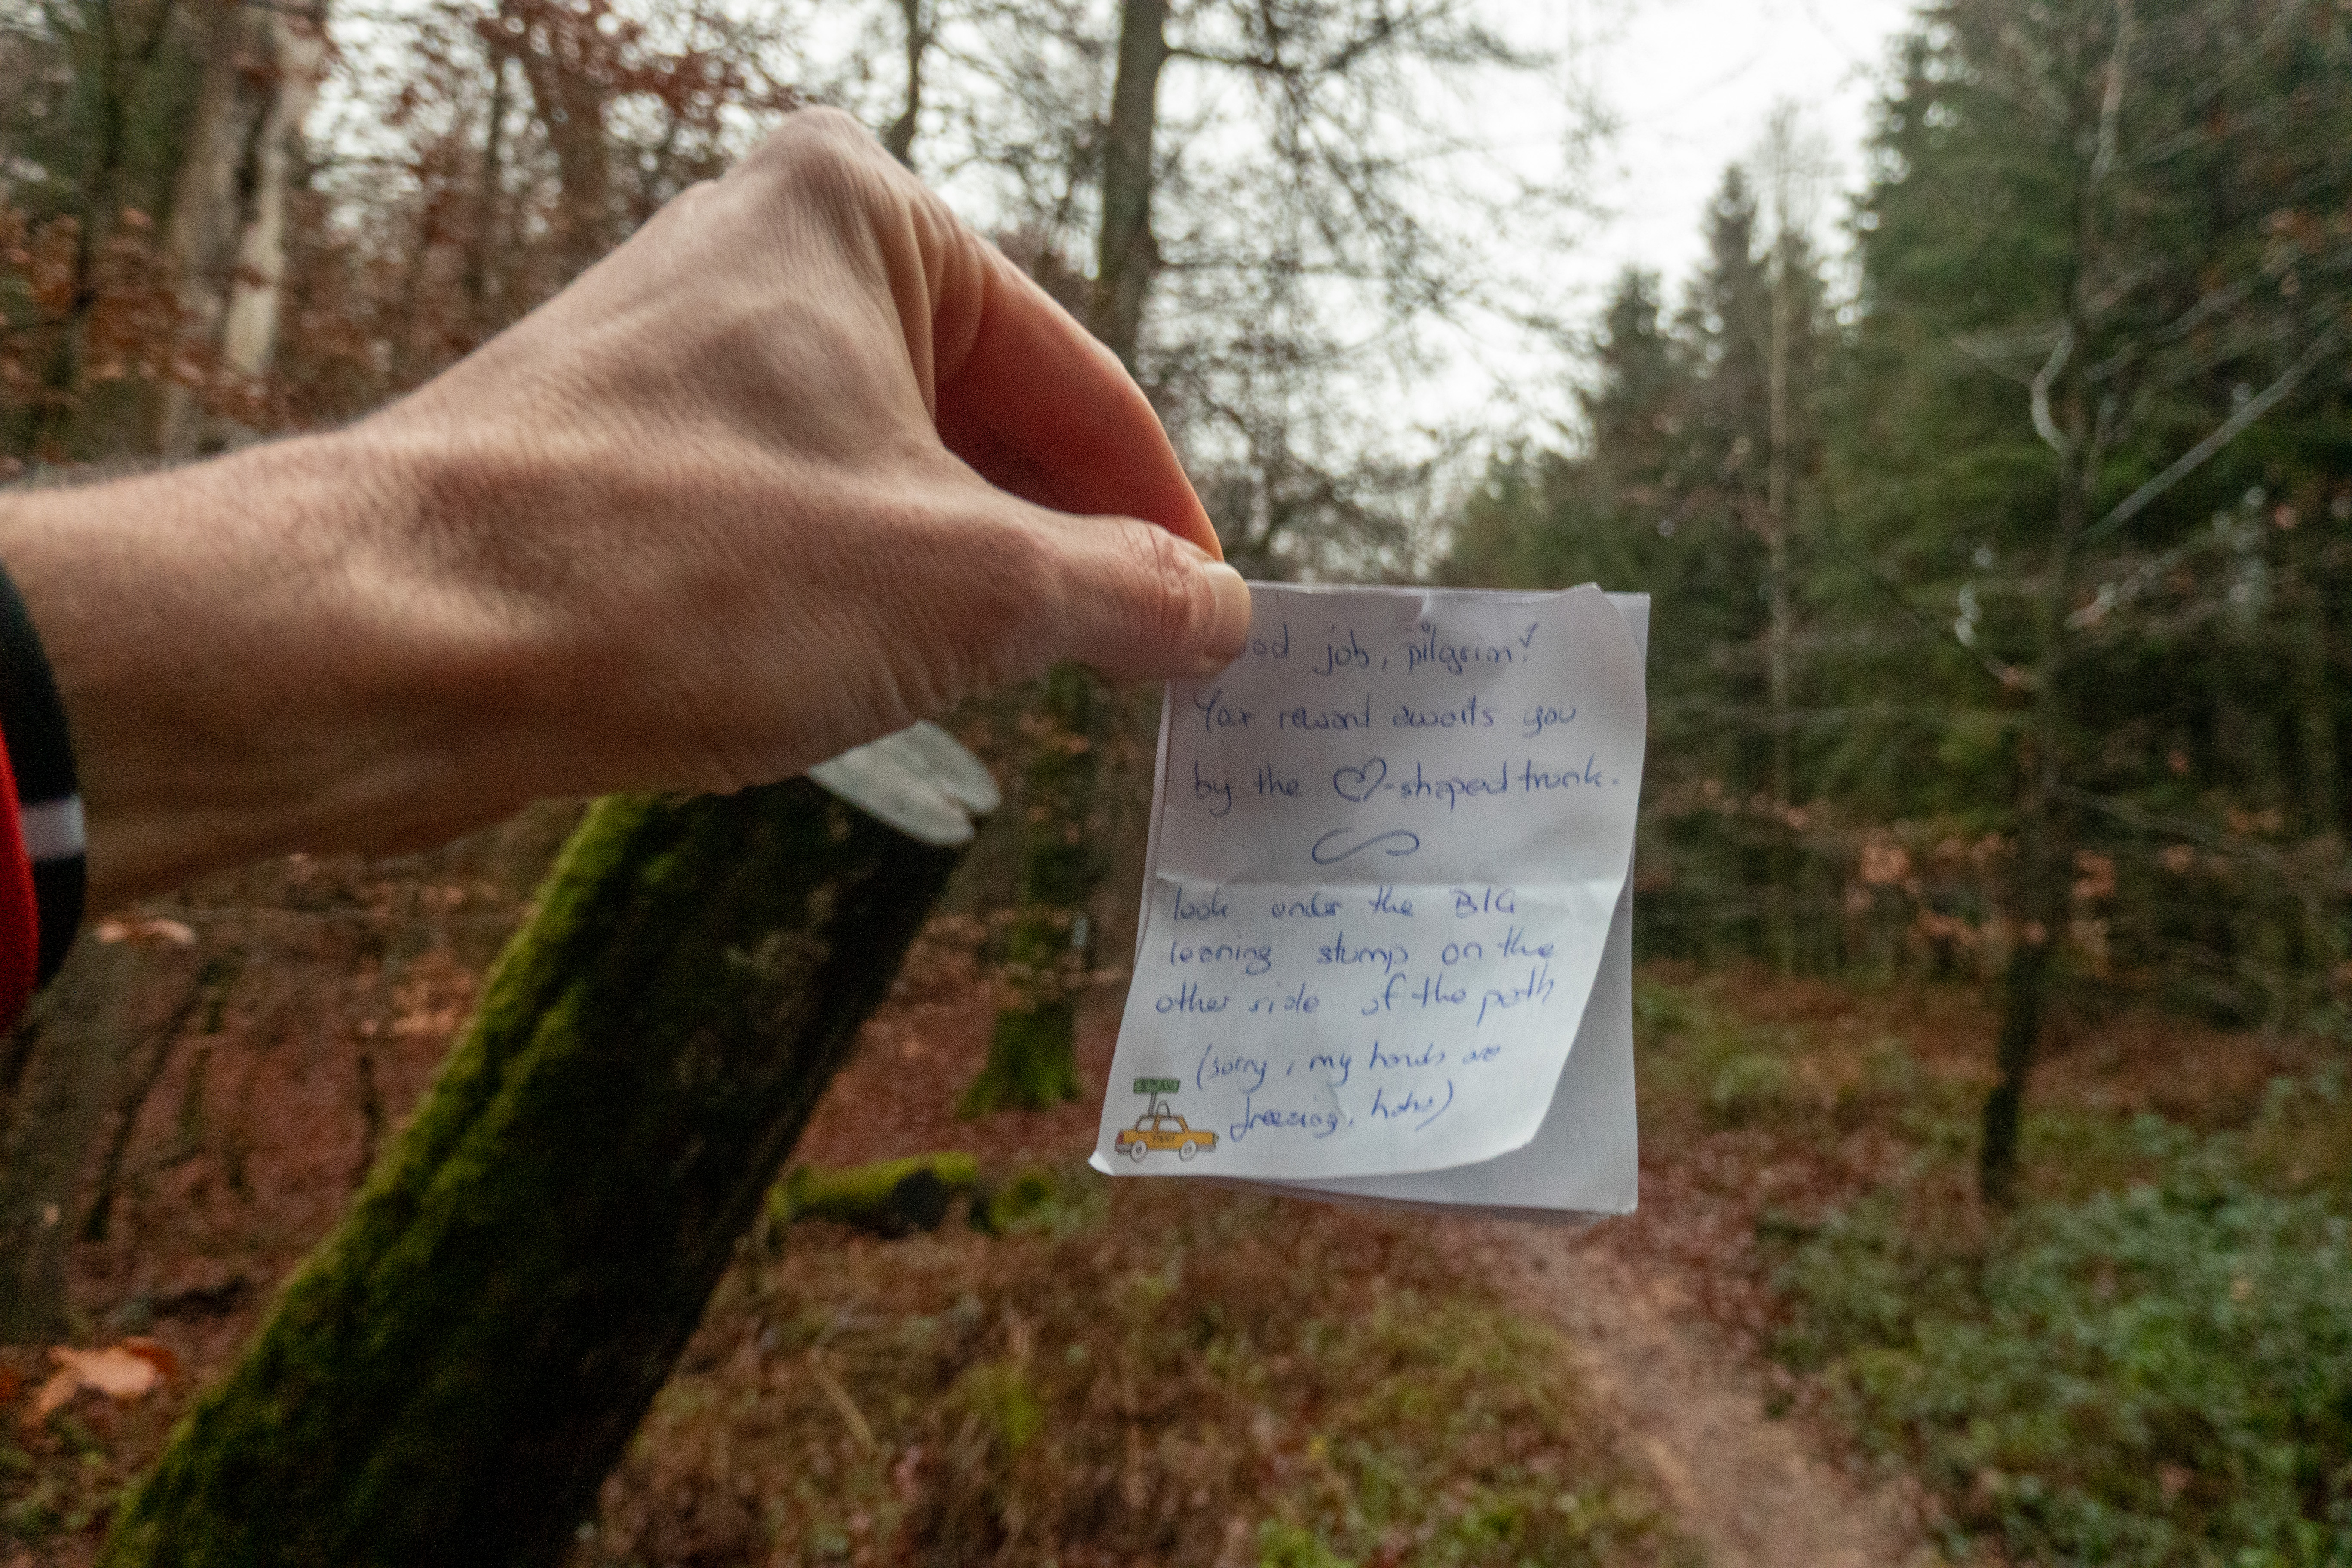 ood job, pilgrim!
Your reward awaits you
by the ♡-shaped trunk.
look under the BIG
leaning stump on the
other side of the path
(sorry, my hands are
freezing, haha)
TAXI